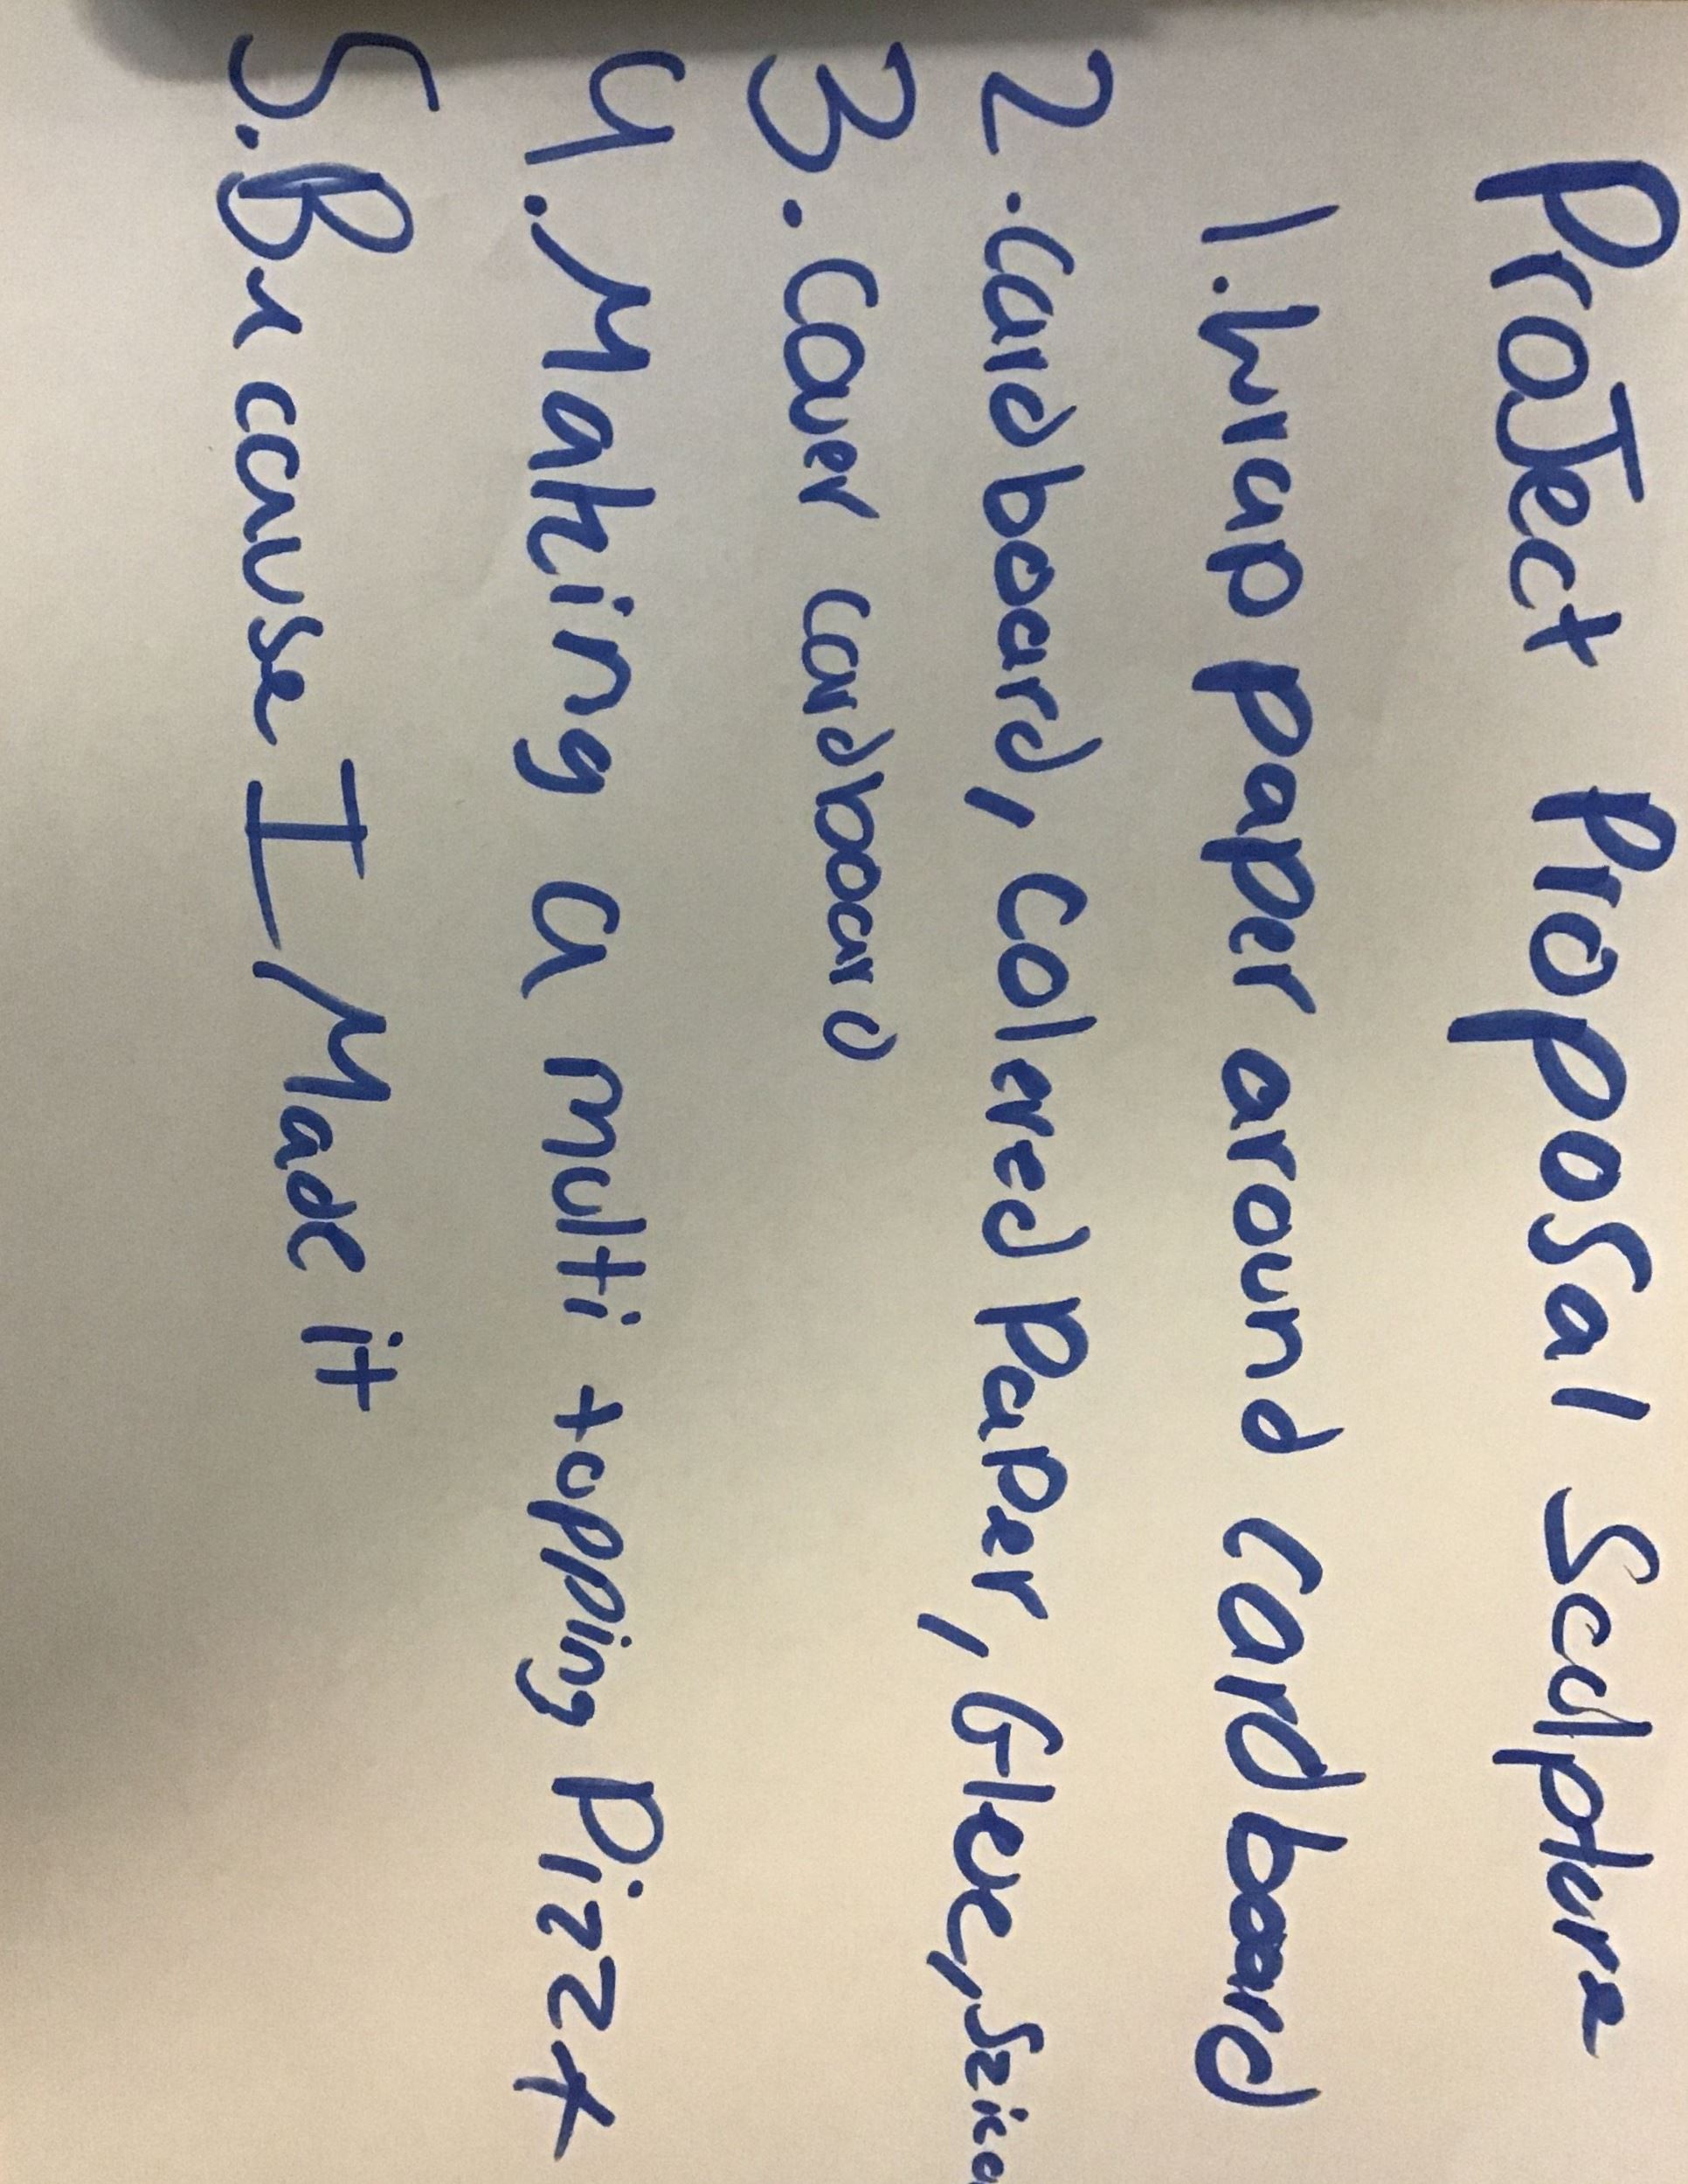 ProJect Proposal Sculpture
1. Wrap paper around cardboard
2. cardboard, Colored Paper, Glue,
3. Cover cardboard
4. Making a multi topping Pizza
5. Because I Made it